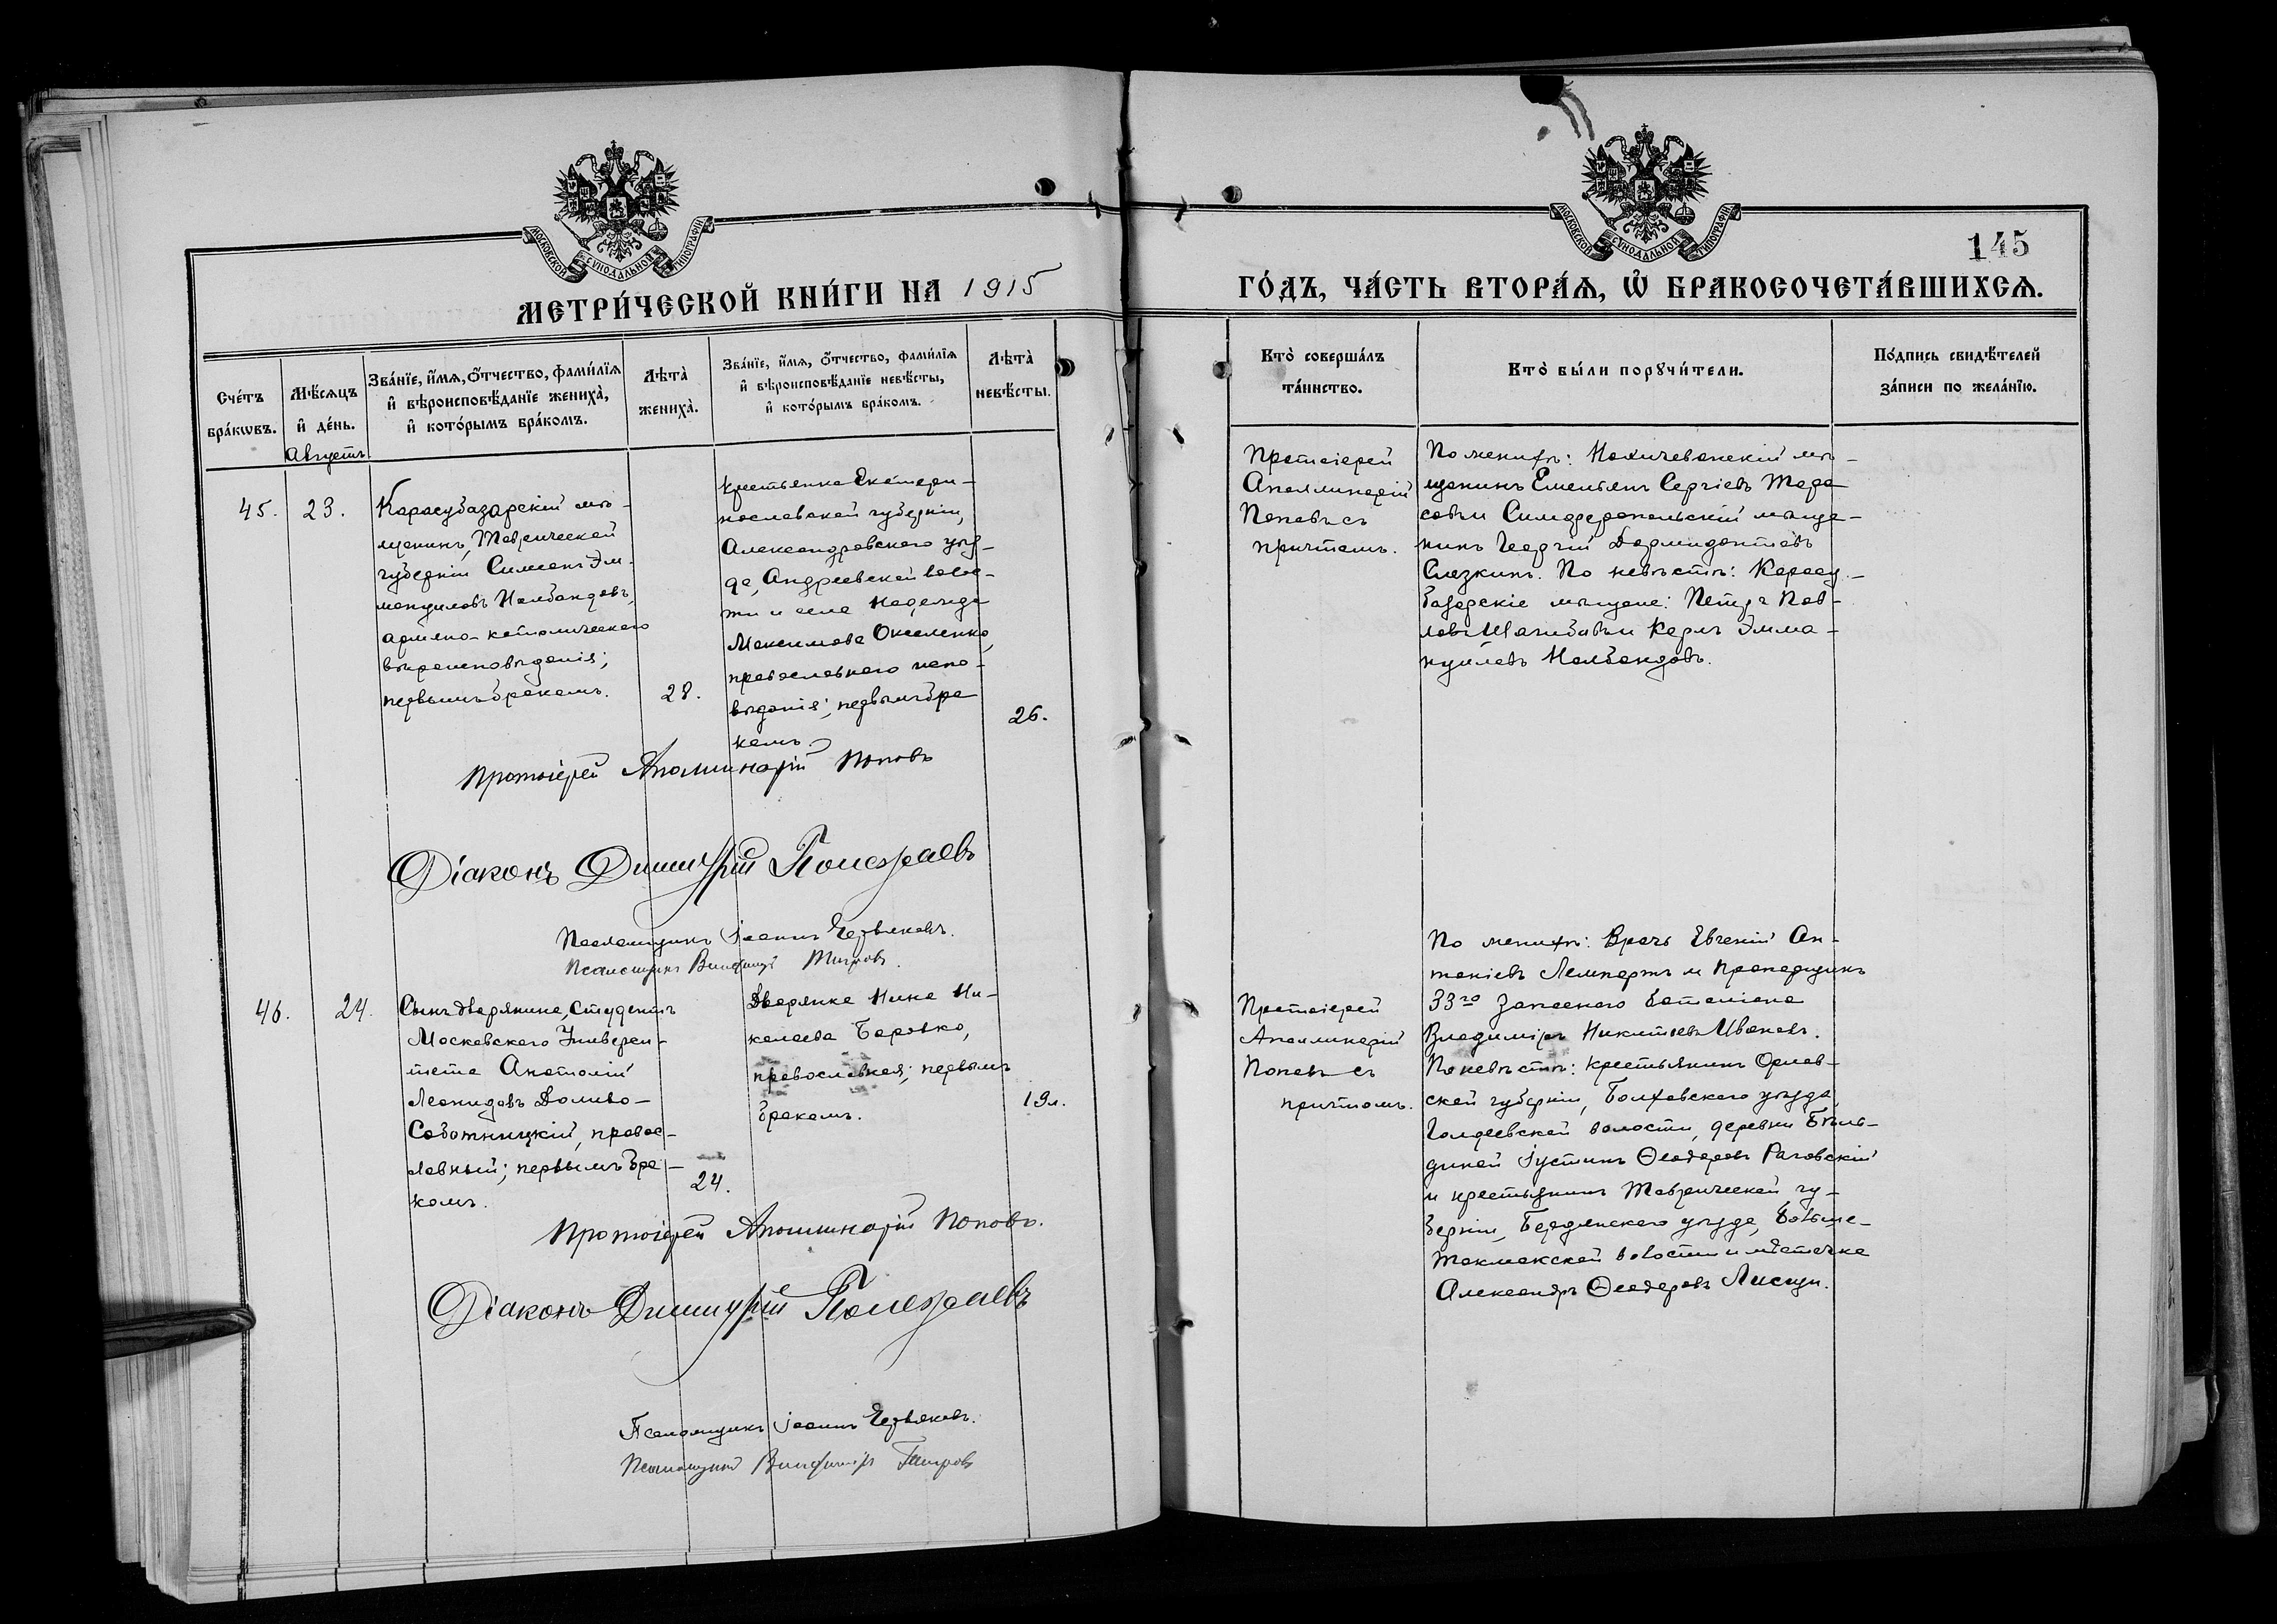 МОСКОВСКОЙ СѴНОДАЛЬНОЙ ТИПОГРАФІИ
МЕТРИ́ЧЕСКОЙ КНИ́ГИ НА 1915
Сче́тъ бра́кѡвъ.
Мѣ́сяцъ и҆ де́нь.
Зва́нїе, и҆́мѧ, ѻ҆́тчество, фами́лїѧ и҆ вѣроисповѣ́данїе жениха̀, и҆ кото́рымъ бра́комъ.
Лѣта̀ жениха̀.
Зва́нїе, и҆́мѧ, ѻ҆́тчество, фами́лїѧ и҆ вѣроисповѣ́данїе невѣ́сты, и҆ кото́рымъ бра́комъ.
Лѣта̀ невѣ́сты.
Августъ.
45.
23.
Карасубазарскій мѣ-
щанинъ, Таврической
губерніи Симеонъ Эм-
мануиловъ Налбандовъ,
армяно-католическаго
вѣроисповѣданія;
первымъ бракомъ.
28.
Крестьянка Екатери-
нославской губерніи,
Александровскаго уѣз-
да, Андреевской волос-
ти и села Надежда
Максимова
православнаго испо-
вѣданія; первымъ бра
комъ.
26.
Протоіерей Аполлинарій Поповъ
Діаконъ Димитрій Полездаевъ
Псаломщикъ Іоаннъ Червяковъ.
Псаломщикъ
46.
24.
Сынъ дворянина, студентъ
Московскаго Универси-
тета Анатолій
Леонидовъ Доливо-
Соботницкій, правос-
лавный; первымъ бра-
комъ.
24.
Дворянка Нина Ни-
колаева Боровко,
православная; первымъ
бракомъ.
19 л.
Протоіерей Аполлинарій Поповъ.
Діаконъ Димитрій Полездаевъ
Псаломщикъ Іоаннъ Червяковъ.
Псаломщикъ
МОСКОВСКОЙ СѴНОДАЛЬНОЙ ТИПОГРАФІИ
145
ГО́ДЪ, ЧА́СТЬ ВТОРА́Ѧ, Ѽ БРАКОСОЧЕТА́ВШИХСѦ.
Кто̀ соверша́лъ та́инство.
Кто̀ бы́ли порꙋчи́тели.
По́дпись свидѣ́телей за́писи по жела́нїю.
Протоіерей
Аполлинарій
Поповъ съ
причтомъ.
По женихѣ: Нахичеванскій мѣ-
щанинъ Емельянъ Сергіевъ Тара
совъ и Симферопольскій мѣща-
нинъ Георгій Дормидонтовъ
Слезкинъ. По невѣстѣ: Карасу-
базарскіе мѣщане: Петръ Пав-
ловъ и Карлъ Эмма-
нуиловъ Налбандовъ.
Протоіерей
Аполлинарій
Поповъ съ
причтомъ.
По женихѣ: Врачъ Евгеній Ан-
тоніевъ Лемпартъ и Прапорщикъ
33го Запаснаго баталіона
Владиміръ Никитіевъ Ивановъ.
По невѣстѣ: крестьянинъ Орлов-
ской губерніи, Болховскаго уѣзда,
волости, деревни
Іустинъ Ѳеодоровъ
и крестьянинъ Таврической гу-
берніи, Бердянскаго уѣзда, Больше-
Токмакской волости и мѣстечка
Александръ Ѳеодоровъ Лисица.